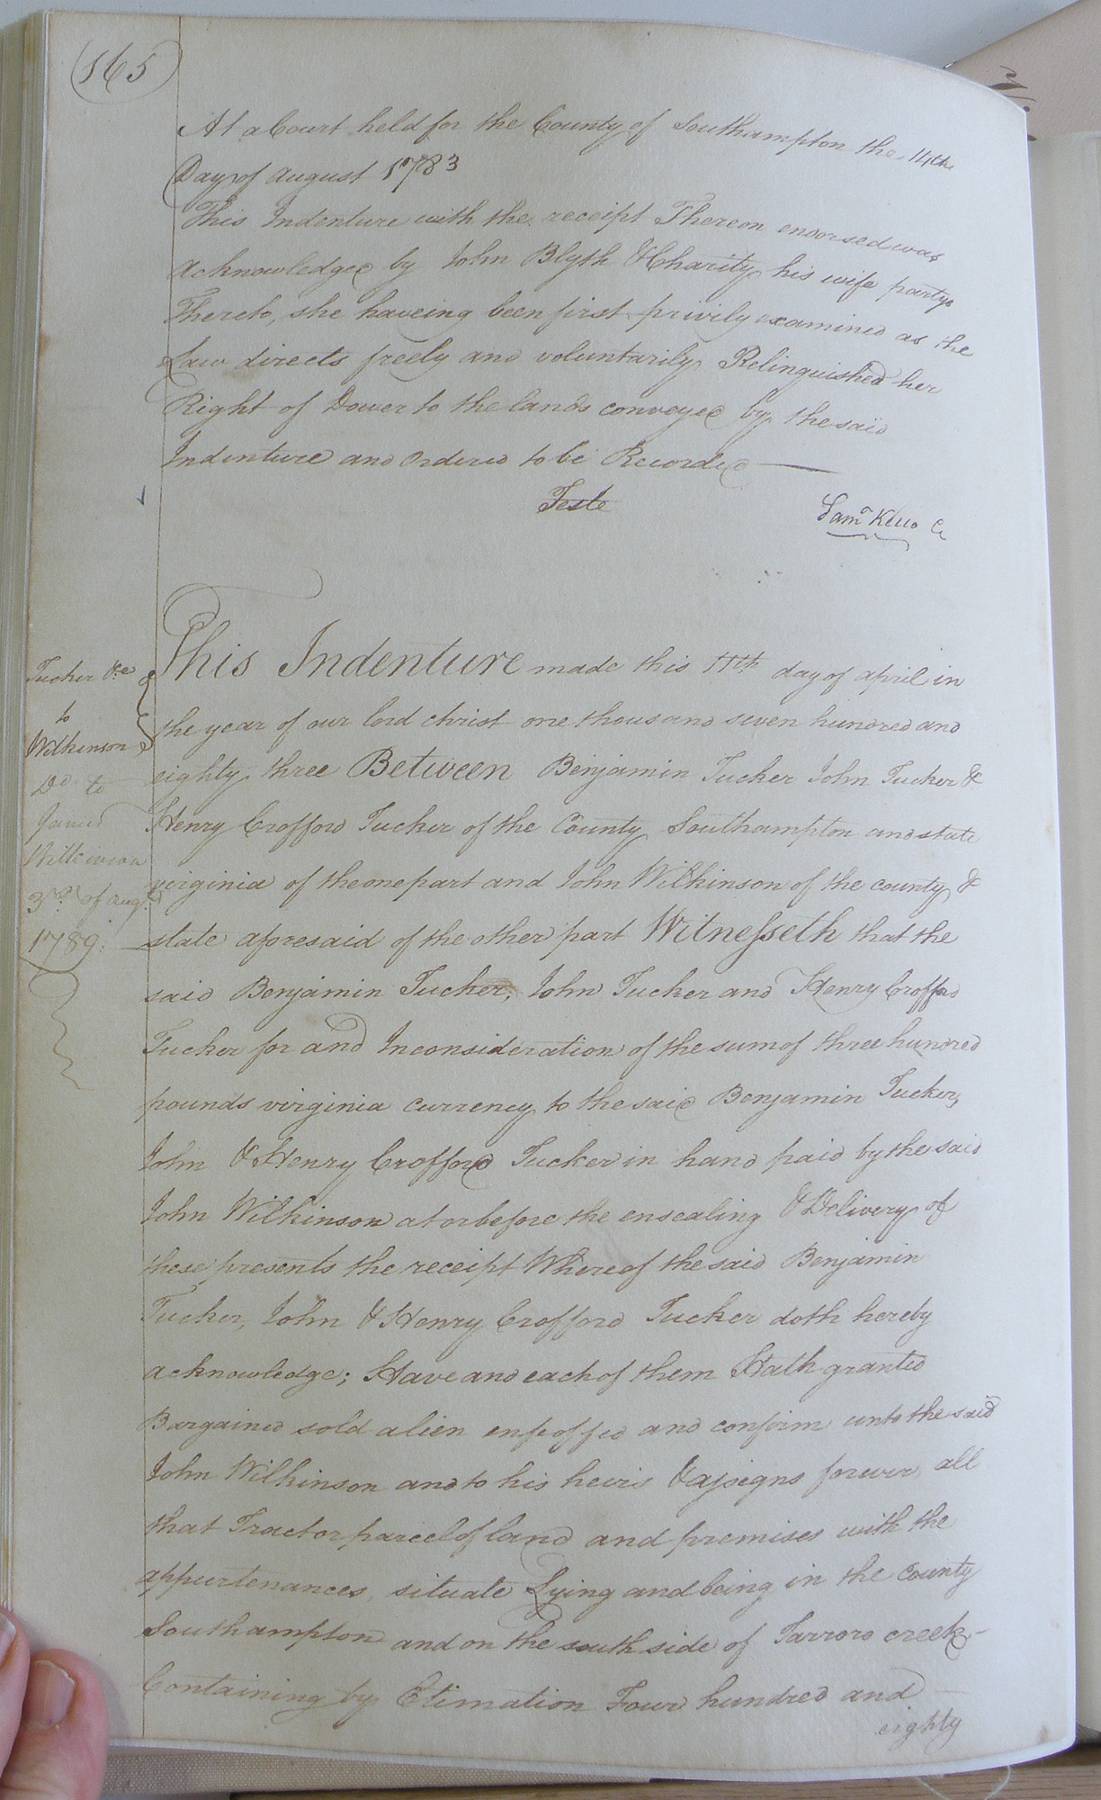 165
At a Court held for the County of Southampton the 14th
Day of August 1783
This Indenture with the receipt Thereon endorsed was
acknowledged by John Blyth & Charity his wife partys
Thereto, she haveing been first privily examined as the
Law directs freely and voluntarily Relinquished her
Right of Dower to the lands conveyed by the said
Indenture and Ordered to be Recorded
Teste
Saml Kello C
Tucker &c
to
Wilkinson
Dd. to
James
Wilkinson
3rd. of augt.
1789.
This Indenture made this 11th day of april in
the year of our lord christ one thousand seven hundred and
eighty three Between Benjamin Tucker John Tucker &
Henry Crofford Tucker of the County Southampton and state
virginia of the one part and John Wilkinson of the county &
state aforesaid of the other part Witnesseth that the
said Benjamin Tucker, John Tucker and Henry Crofford
Tucker for and Inconsideration of the sum of three hundred
pounds virginia currency to the said Benjamin Tucker,
John & Henry Crofford Tucker in hand paid by the said
John Wilkinson at or before the ensealing & Delivery of
these presents the receipt Whereof the said Benjamin
Tucker, John & Henry Crofford Tucker doth hereby
acknowledge; Have and each of them Hath granted
Bargained sold alien enfeoffed and confirm unto the said
John Wilkinson and to his heirs & assigns forever all
that Tract or parcel of land and premises with the
appurtenances, situate Lying and being in the county
Southampton and on the south side of Tarroro creek
Containing by Etimation Four hundred and
eighty